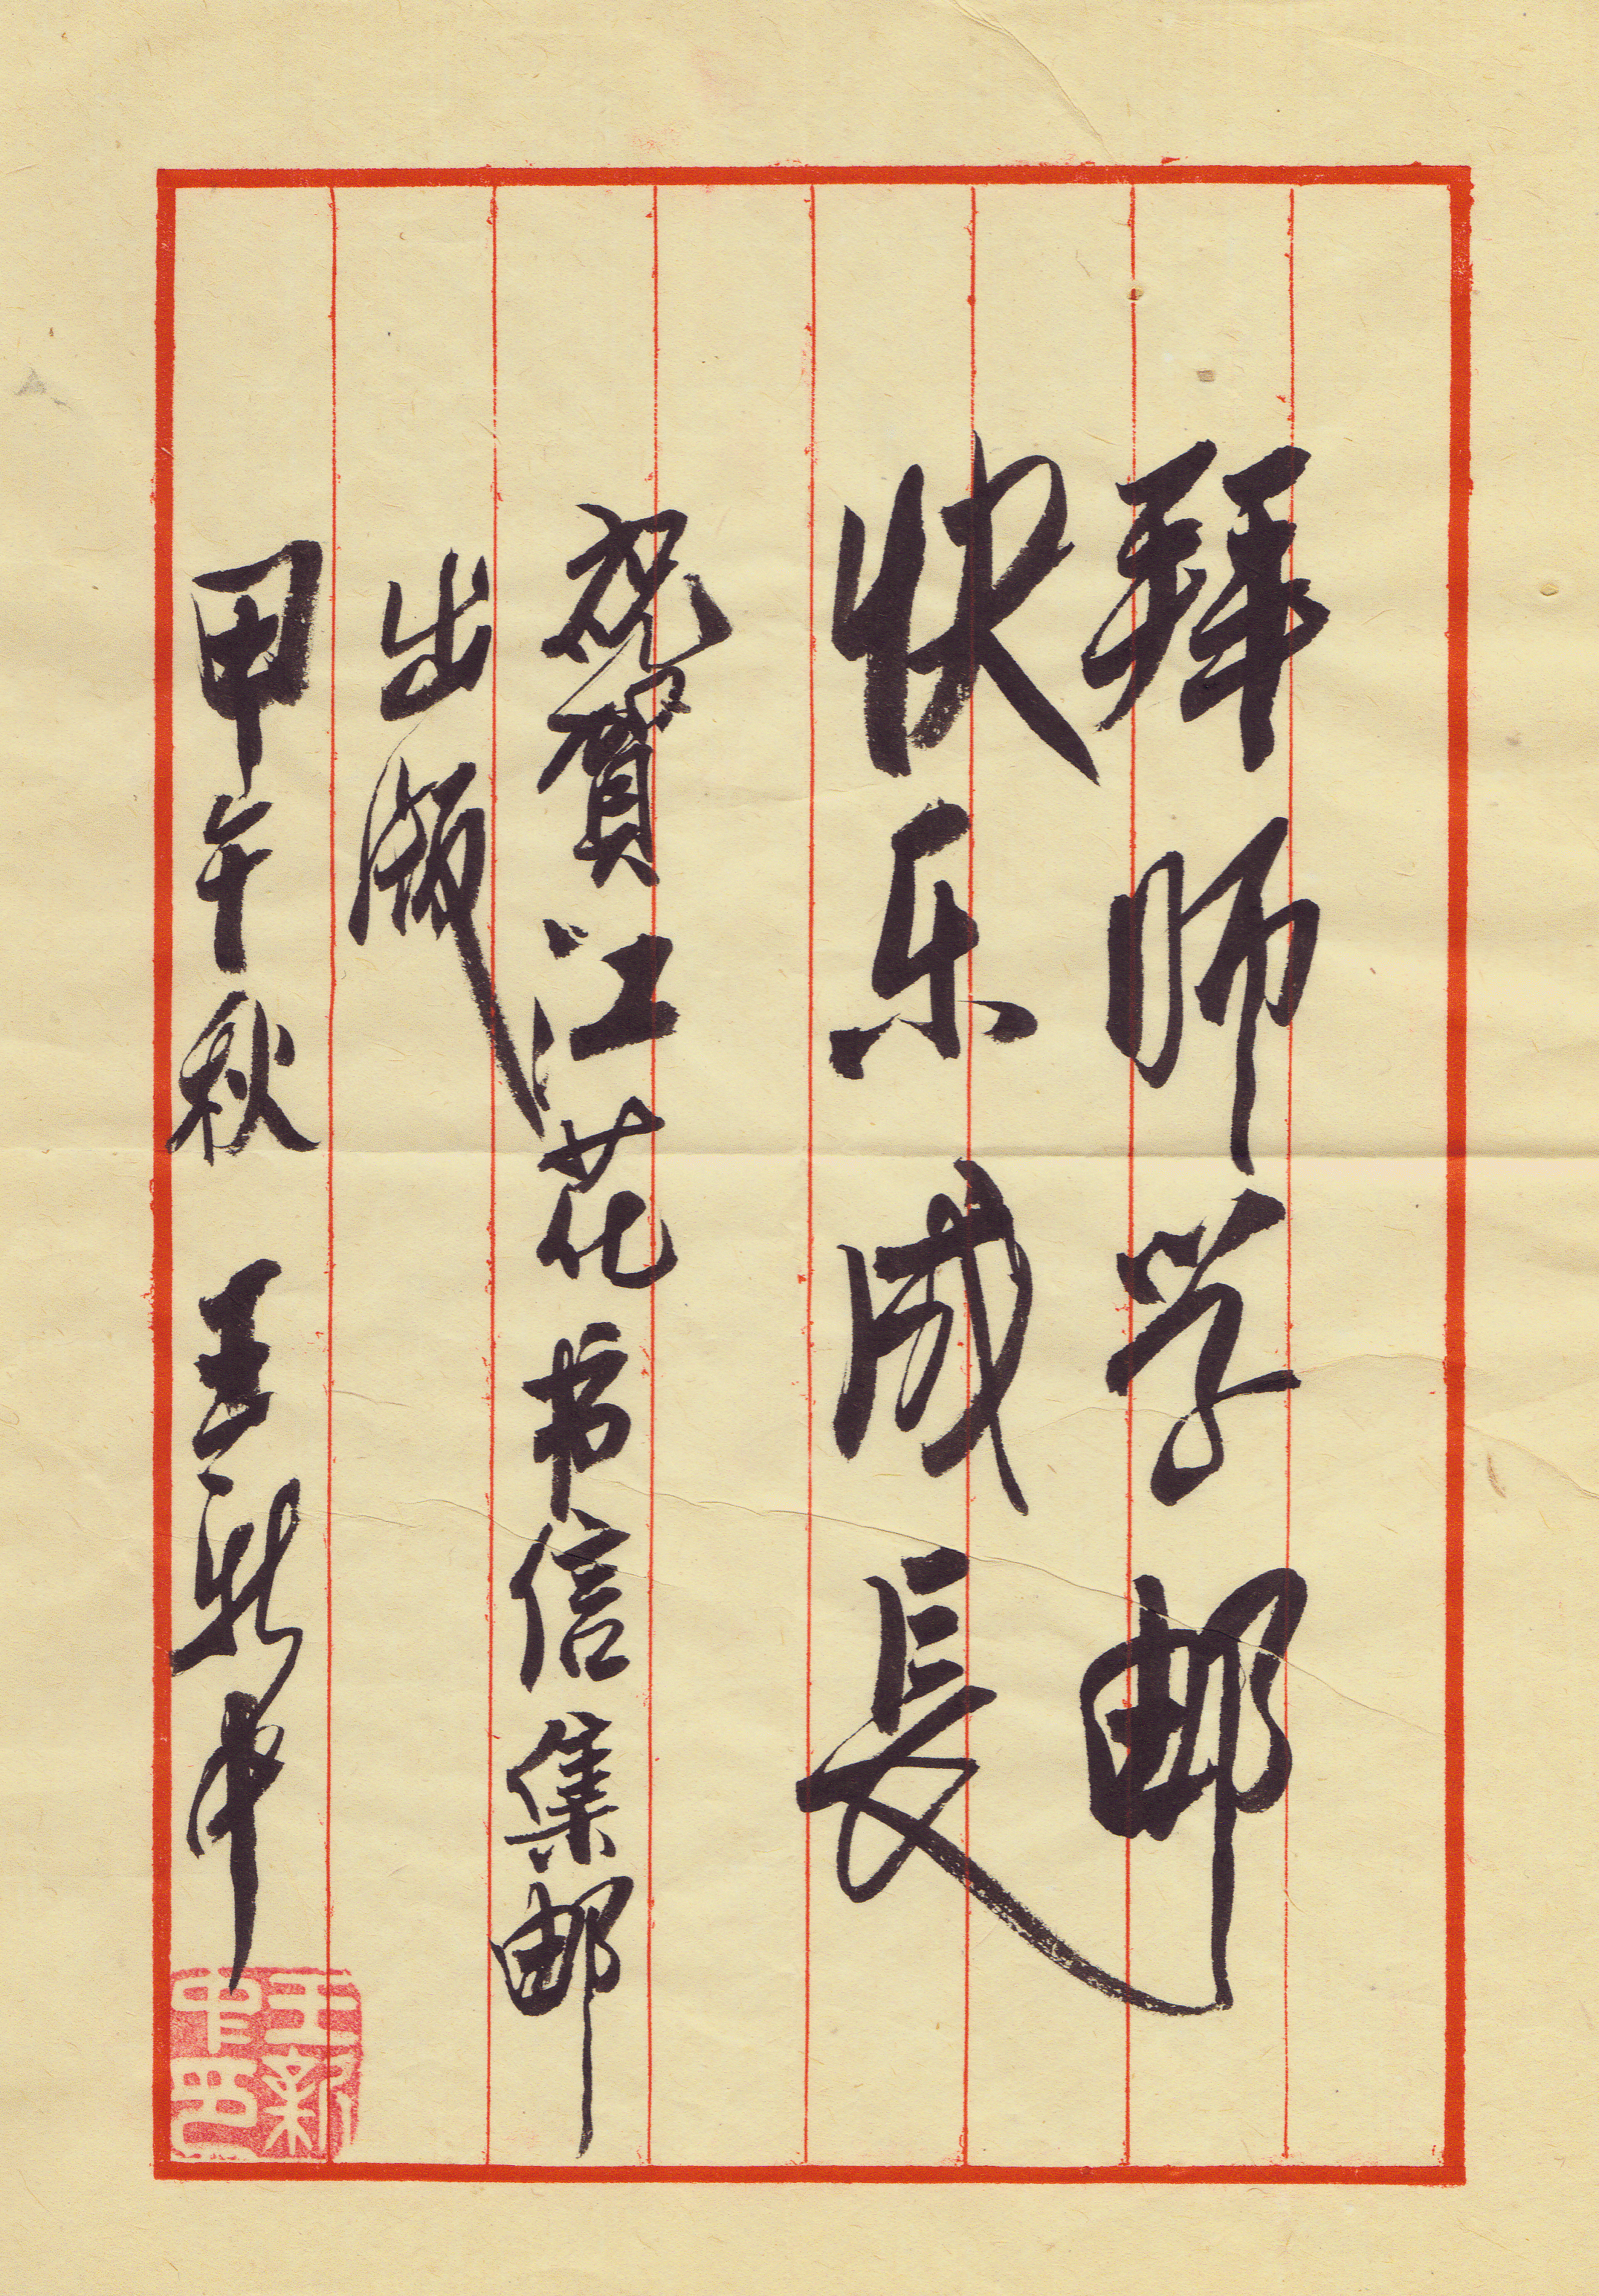 拜师学邮
快乐成長
祝賀江花书信集邮
出版
甲午秋 王新中
王新
中